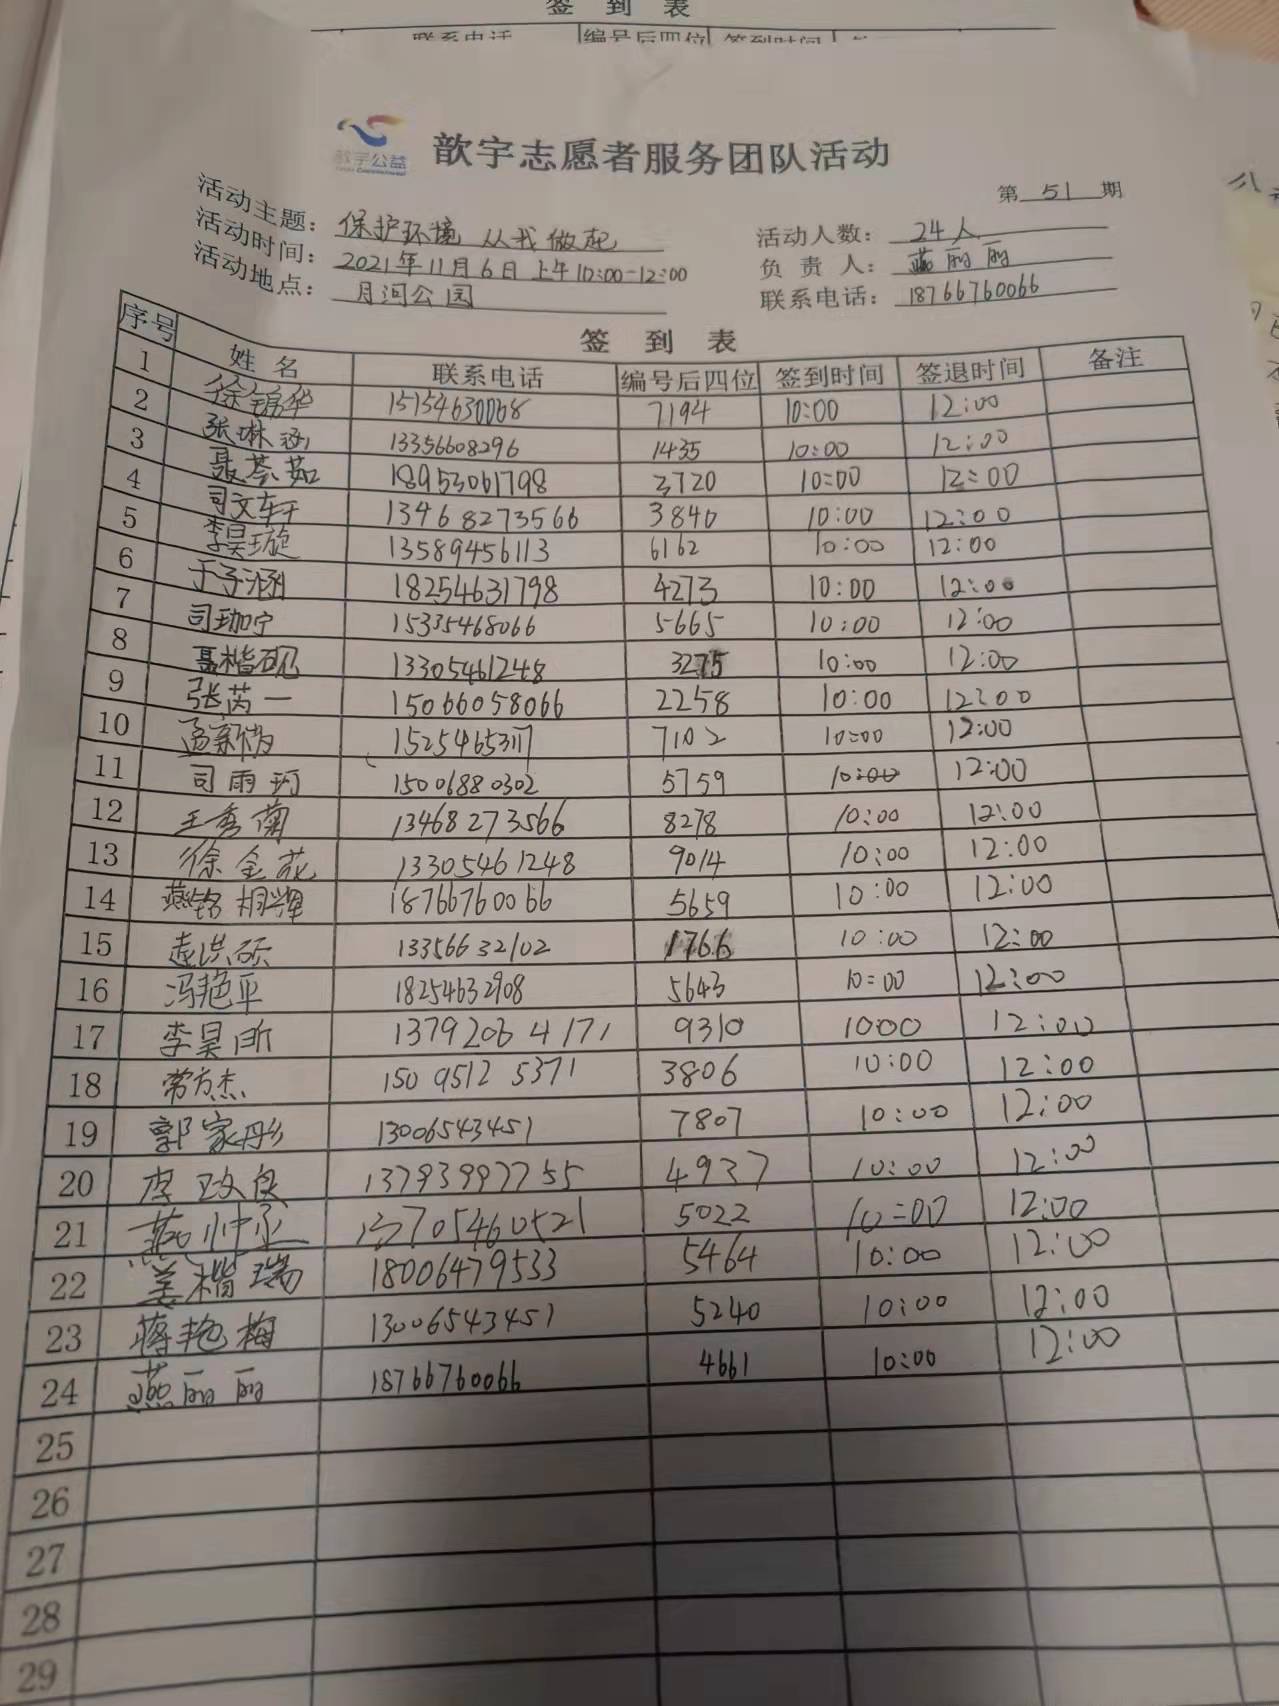 签 到 表
联系电话 编号后四位 签到时间
歆宇公益
歆宇志愿者服务团队活动
第 51 期
活动主题: 保护环境 从我做起 活动人数: 24人
活动时间: 2021年11月6日 上午10:00-12:00 负 责 人: 燕丽丽
活动地点: 月河公园 联系电话: 18766760066
签 到 表
序号 姓 名 联系电话 编号后四位 签到时间 签退时间 备注
1 徐锦华 15154630068 7194 10:00 12:00
2 张琳涵 13356608296 1435 10:00 12:00
3 聂荟茹 18953061798 3720 10:00 12:00
4 司文轩 13468273566 3840 10:00 12:00
5 李昊璇 13589456113 6162 10:00 12:00
6 于子涵 18254631798 4273 10:00 12:00
7 司珈宁 15335468066 5665 10:00 12:00
8 聂楷砚 13305461248 3275 10:00 12:00
9 张芮一 15066058066 2258 10:00 12:00
10 1525465311 7102 10:00 12:00
11 司雨珂 15006880302 5759 10:00 12:00
12 王秀兰 13468273566 8278 10:00 12:00
13 徐金花 13305461248 9014 10:00 12:00
14 燕铭桐辉 18766760066 5659 10:00 12:00
15 13356632102 1766 10:00 12:00
16 冯艳平 18254632908 5643 10:00 12:00
17 李昊昕 13792064171 9310 1000 12:00
18 常方杰 150 9512 5371 3806 10:00 12:00
19 郭家彤 13006543451 7807 10:00 12:00
20 李政良 13793997755 4937 10:00 12:00
21 燕帅 13705460521 5022 10:00 12:00
22 姜楷瑞 18006479533 5464 10:00 12:00
23 蒋艳梅 13006543451 5240 10:00 12:00
24 燕丽丽 18766760066 4661 10:00 12:00
25
26
27
28
29